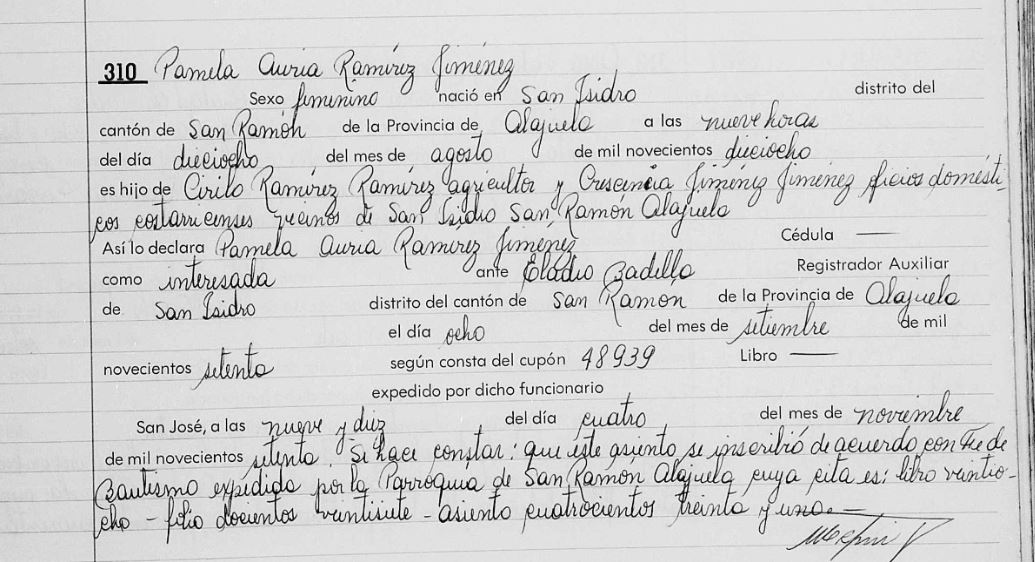 310 Pamela Auria Ramírez Jiménez
Sexo femenino nació en San Isidro distrito del
cantón de San Ramón de la Provincia de Alajuela a las nueve horas
del día dieciocho del mes de agosto de mil novecientos dieciocho
es hijo de Cirilo Ramírez Ramírez agricultor y Crescencia Jiménez Jiménez oficios domésti-
cos costarricenses vecinos de San Isidro San Ramón Alajuela
Así lo declara Pamela Auria Ramírez Jiménez Cédula —
como interesada ante Eladio Badilla Registrador Auxiliar
de San Isidro distrito del cantón de San Ramón de la Provincia de Alajuela
el día ocho del mes de setiembre de mil
novecientos setenta según consta del cupón 48939 Libro —
expedido por dicho funcionario
San José, a las nueve y diez del día cuatro del mes de noviembre
de mil novecientos setenta. Se hace constar: que este asiento se inscribió de acuerdo con Fe de
Bautismo expedida por la Parroquia de San Ramón Alajuela cuya cita es: libro veintio-
cho - folio docientos veintisiete - asiento cuatrocientos treinta y uno.—